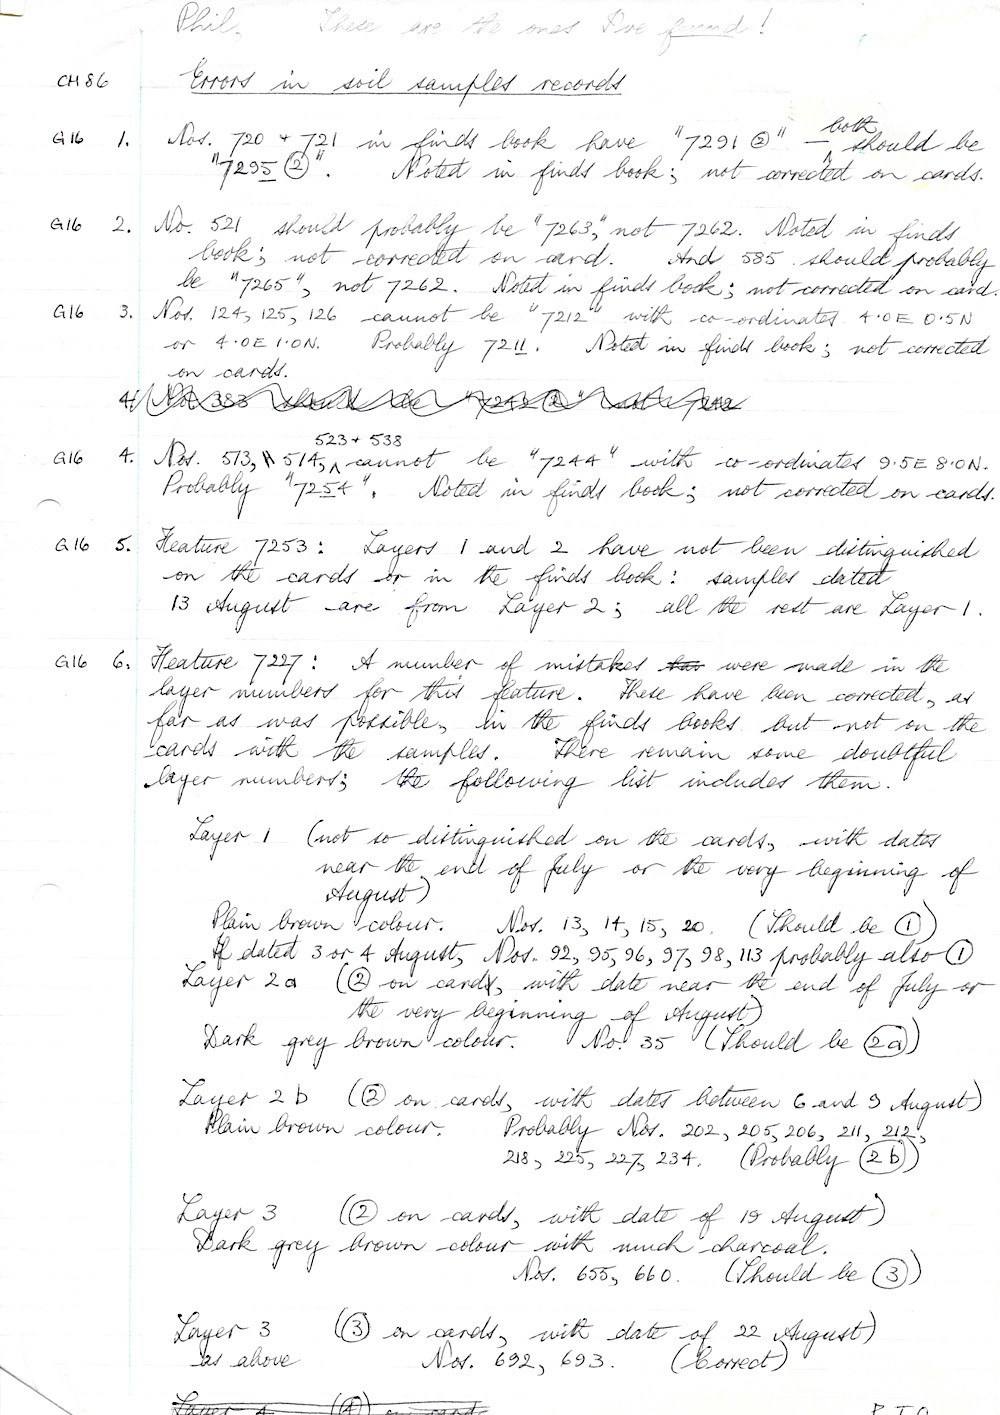 Phil, These are the ones I've found!
CH86 Errors in soil samples records
G16 1. Nos. 720 + 721 in finds book have "7291 ②" — both should be
"7295 ②". Noted in finds book; not corrected on cards.
G16 2. No. 521 should probably be "7263", not 7262. Noted in finds
book; not corrected on card. And 585 should probably
be "7265", not 7262. Noted in finds book; not corrected on card.
G16 3. Nos. 124, 125, 126 cannot be "7212" with co-ordinates 4.0E 0.5N
or 4.0E 1.0N. Probably 7211. Noted in finds book; not corrected
on cards.
4. No. 383
G16 4. Nos. 513, 514, 523 + 538 cannot be "7244" with co-ordinates 9.5E 8.0N.
Probably "7254". Noted in finds book; not corrected on cards.
G16 5. Feature 7253: Layers 1 and 2 have not been distinguished
on the cards or in the finds book: samples dated
13 August are from Layer 2; all the rest are Layer 1.
G16 6. Feature 7227: A number of mistakes were made in the
layer numbers for this feature. These have been corrected, as
far as was possible, in the finds books but not on the
cards with the samples. There remain some doubtful
layer numbers; the following list includes them.
Layer 1 (not so distinguished on the cards, with dates
near the end of July or the very beginning of
August)
Plain brown colour. Nos. 13, 14, 15, 20. (Should be ①)
If dated 3 or 4 August, Nos. 92, 95, 96, 97, 98, 113 probably also ①
Layer 2a (② on cards, with date near the end of July or
the very beginning of August)
Dark grey brown colour. No. 35 (Should be 2a)
Layer 2b (② on cards, with dates between 6 and 9 August)
Plain brown colour. Probably Nos. 202, 205, 206, 211, 212,
218, 225, 227, 234. (Probably 2b)
Layer 3 (② on cards, with date of 19 August)
Dark grey brown colour with much charcoal.
Nos. 655, 660. (Should be ③)
Layer 3 (③ on cards, with date of 22 August)
as above Nos. 692, 693. (Correct)
Layer 4 (④) on cards
P.T.O